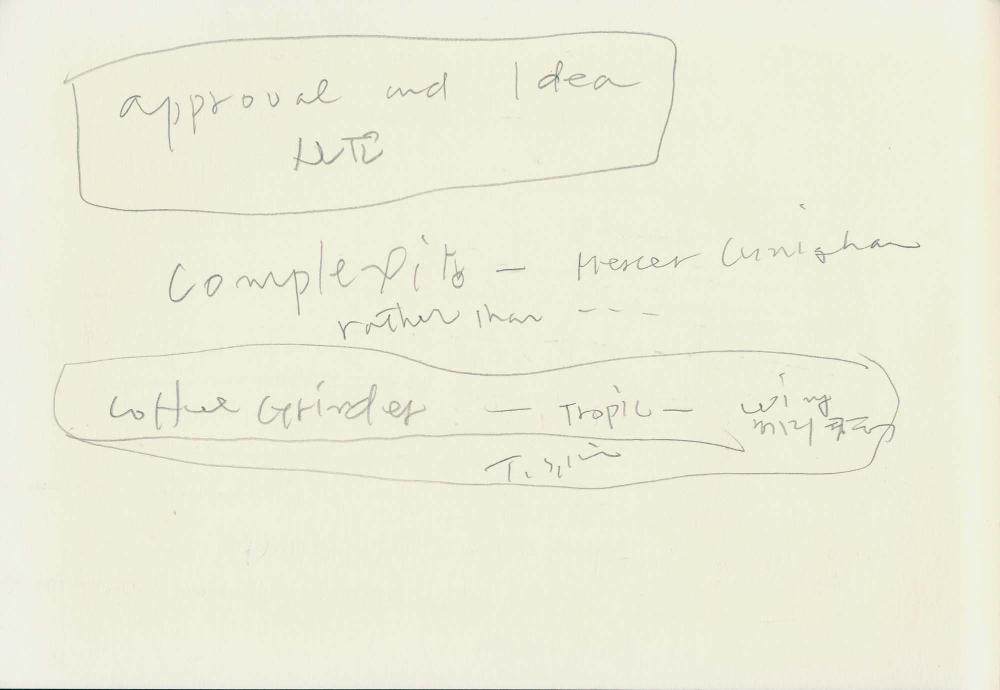 approval and Idea
Complexity — Mercer Cunigham
rather than - - - -
Coffee Grinder — Tropic — wing
T. Spin